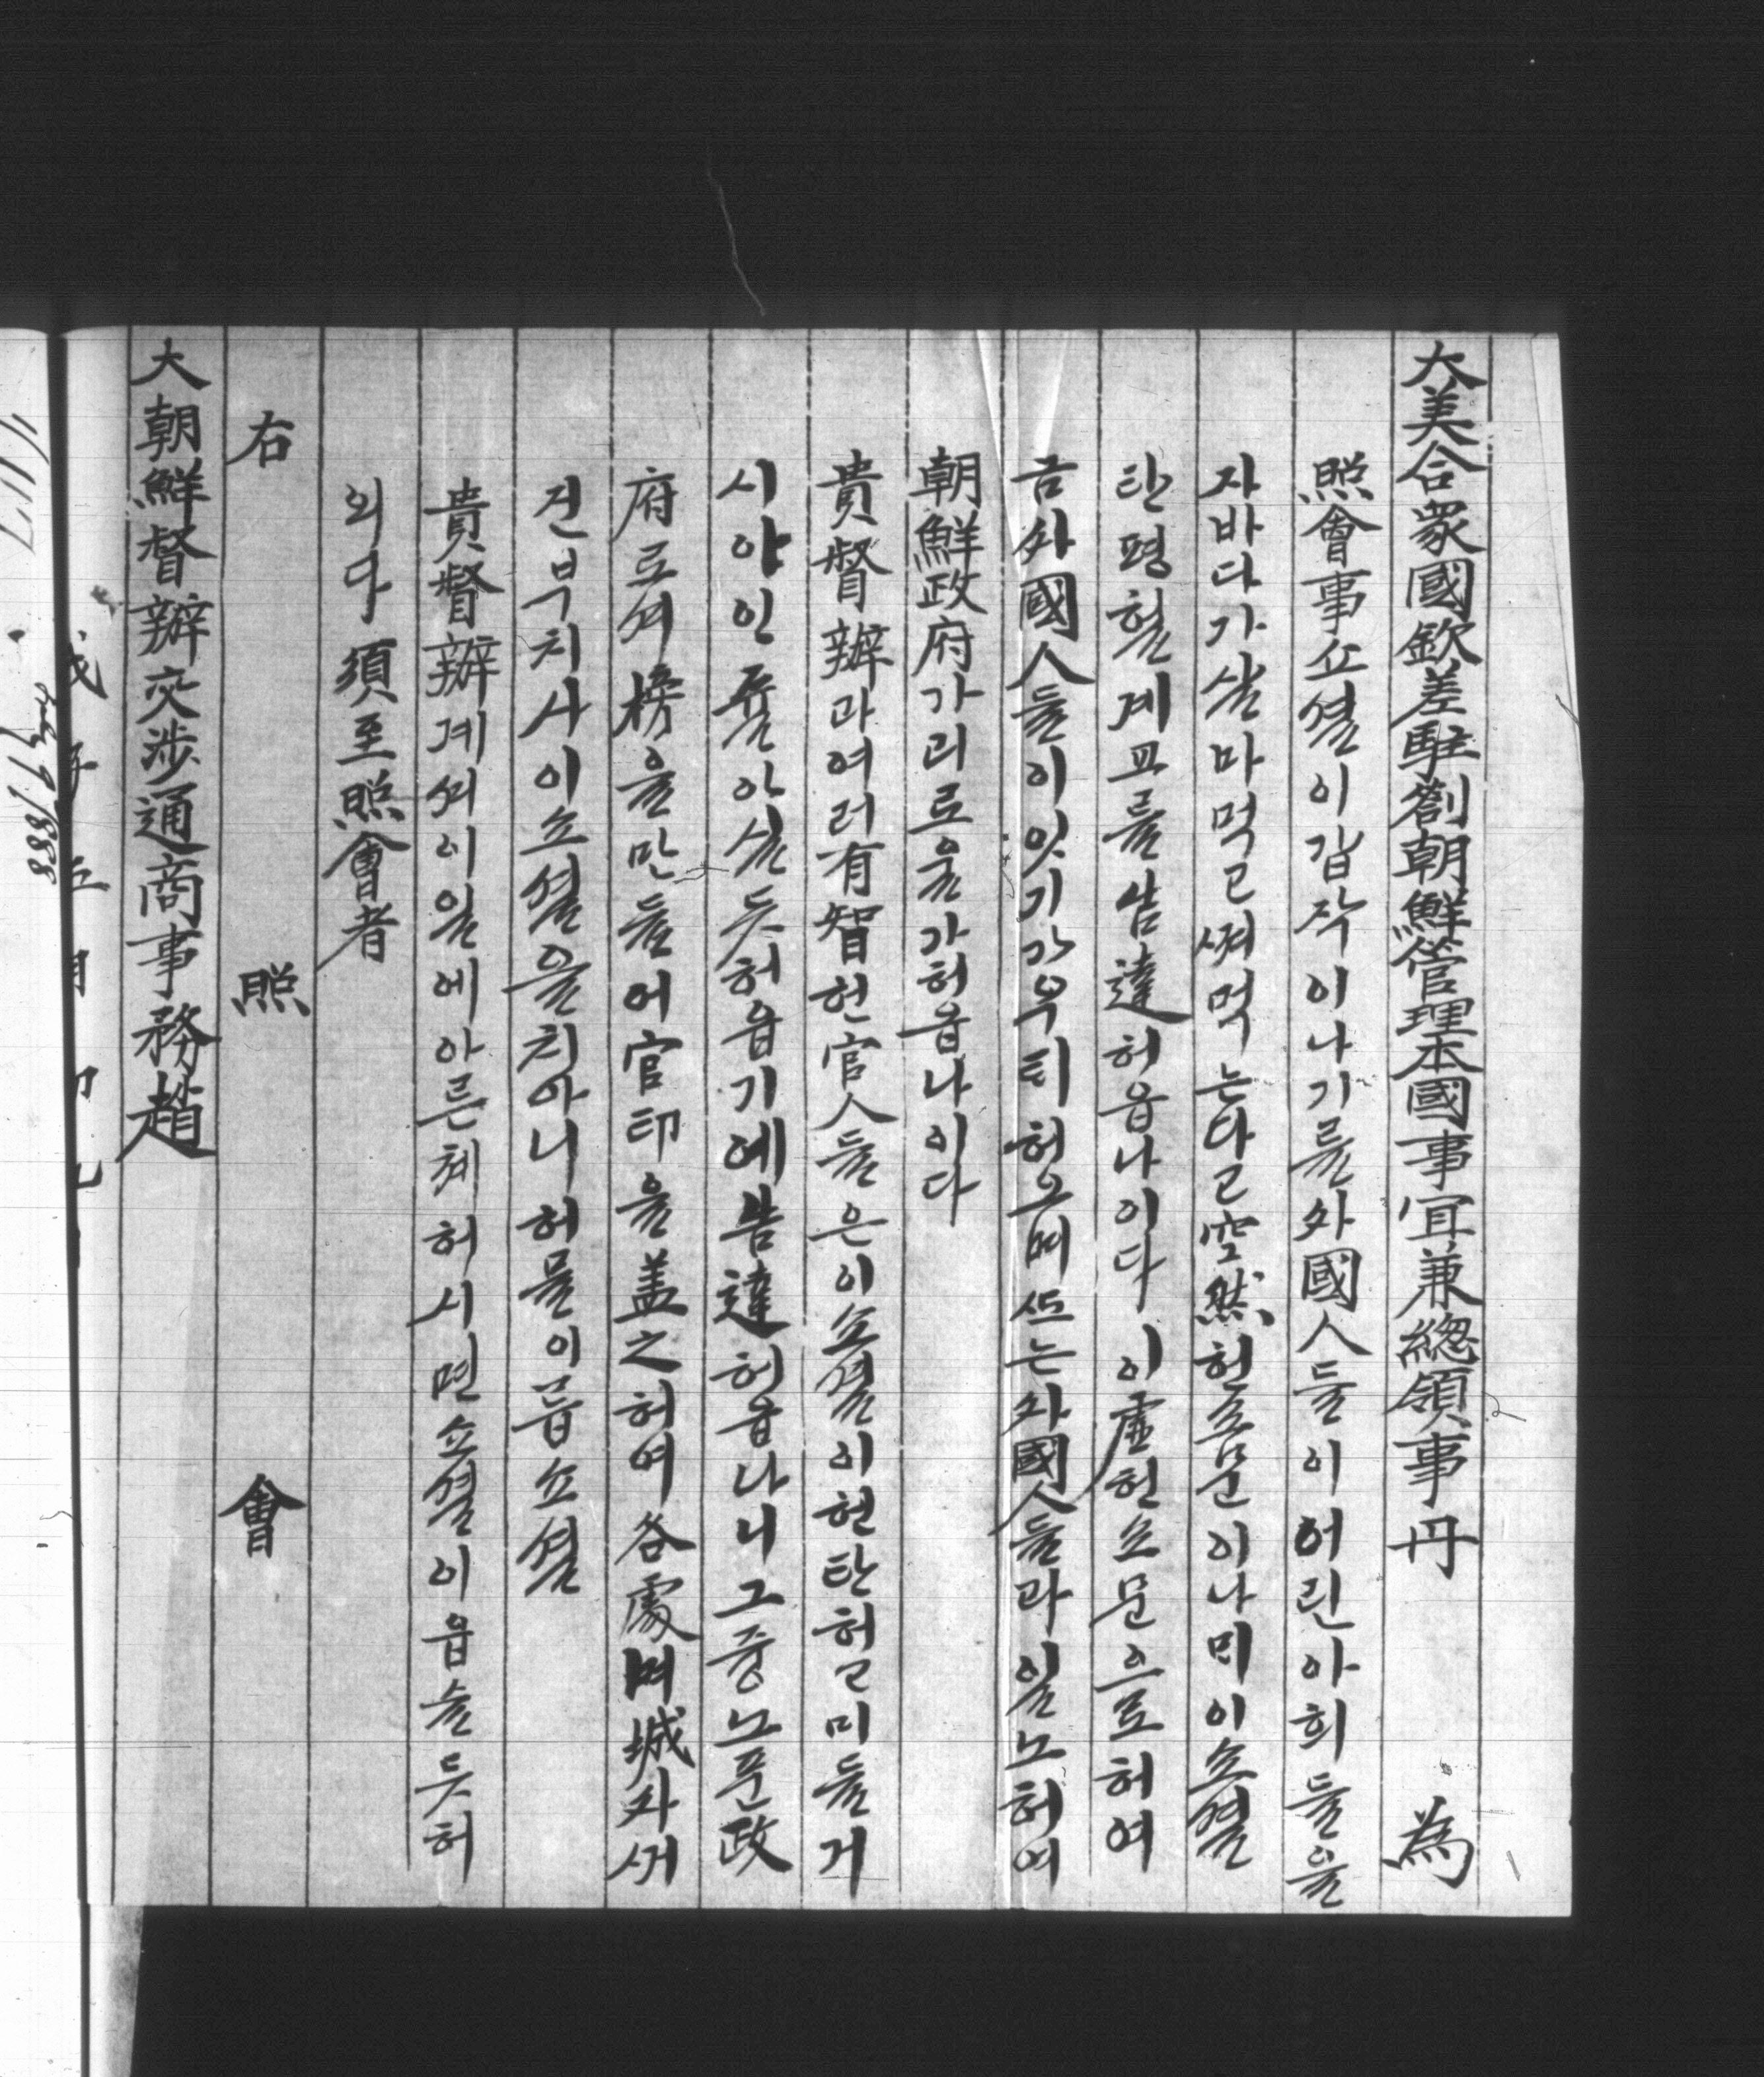 大美合衆國欽差駐劄朝鮮管理本國事宜兼總領事丹 為
照會事쇼셜이갑작이나기를外國人들이어린아희들을
자바다가살마먹고쪄먹는다고空然헌소문이나미이쇼셜
탄평헐계교를삼達허옵나이다이虛헌소문으로허여
금外國人들이잇기가우틱허오며또는外國人들과일노허여
朝鮮政府가괴로울가허옵나이다
貴督辦과여러有智헌官人들은이쇼셜이헌탄허고미들거
시야인쥴아실듯허옵기예봄達허옵나니그중노푼政
府로셔榜을만들어官印을盖之허여各處며城外셔
건부치사이쇼셜을치아니허믈이릅쇼셜
貴督辦계셔이일에아른쳬허시면쇼셜이읍슬듯허
외다 須至照會者
右 照 會
大朝鮮督辦交涉通商事務趙
1888